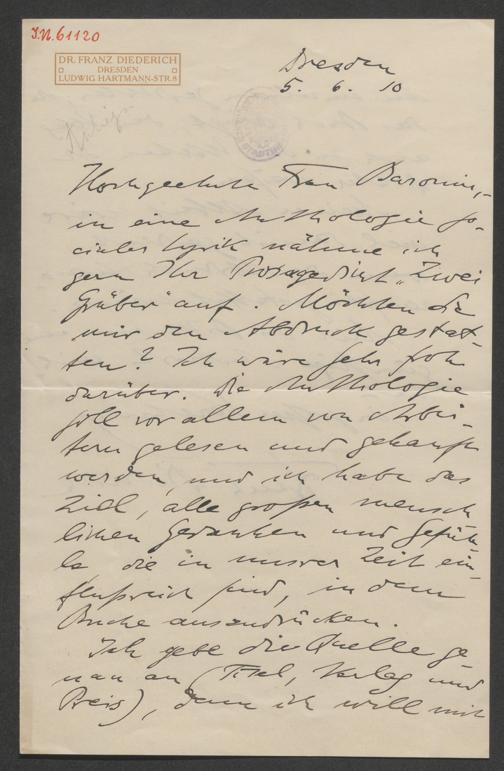 J.N. 61120
DR. FRANZ DIEDERICH
DRESDEN
LUDWIG HARTMANN-STR. 8
Dresden
5. 6. 10
Hochgeehrte Frau Baronin,
in eine Anthologie so-
cialer Lyrik nähme ich
gern Ihr Prosagedicht „Zwei
Gräber" auf. Möchten Sie
mir den Abdruck gestat-
ten? Ich wäre sehr froh
darüber. Die Anthologie
soll vor allem von Arbei-
tern gelesen und gekauft
werden, und ich habe das
Ziel, alle großen mensch
lichen Gedanken und Gefüh-
le die in unsrer Zeit ein-
flußreich sind, in dem
Buche auszudrücken.
Ich gebe die Quelle ge-
nau an (Titel, Verlag und
Preis), denn ich will mit